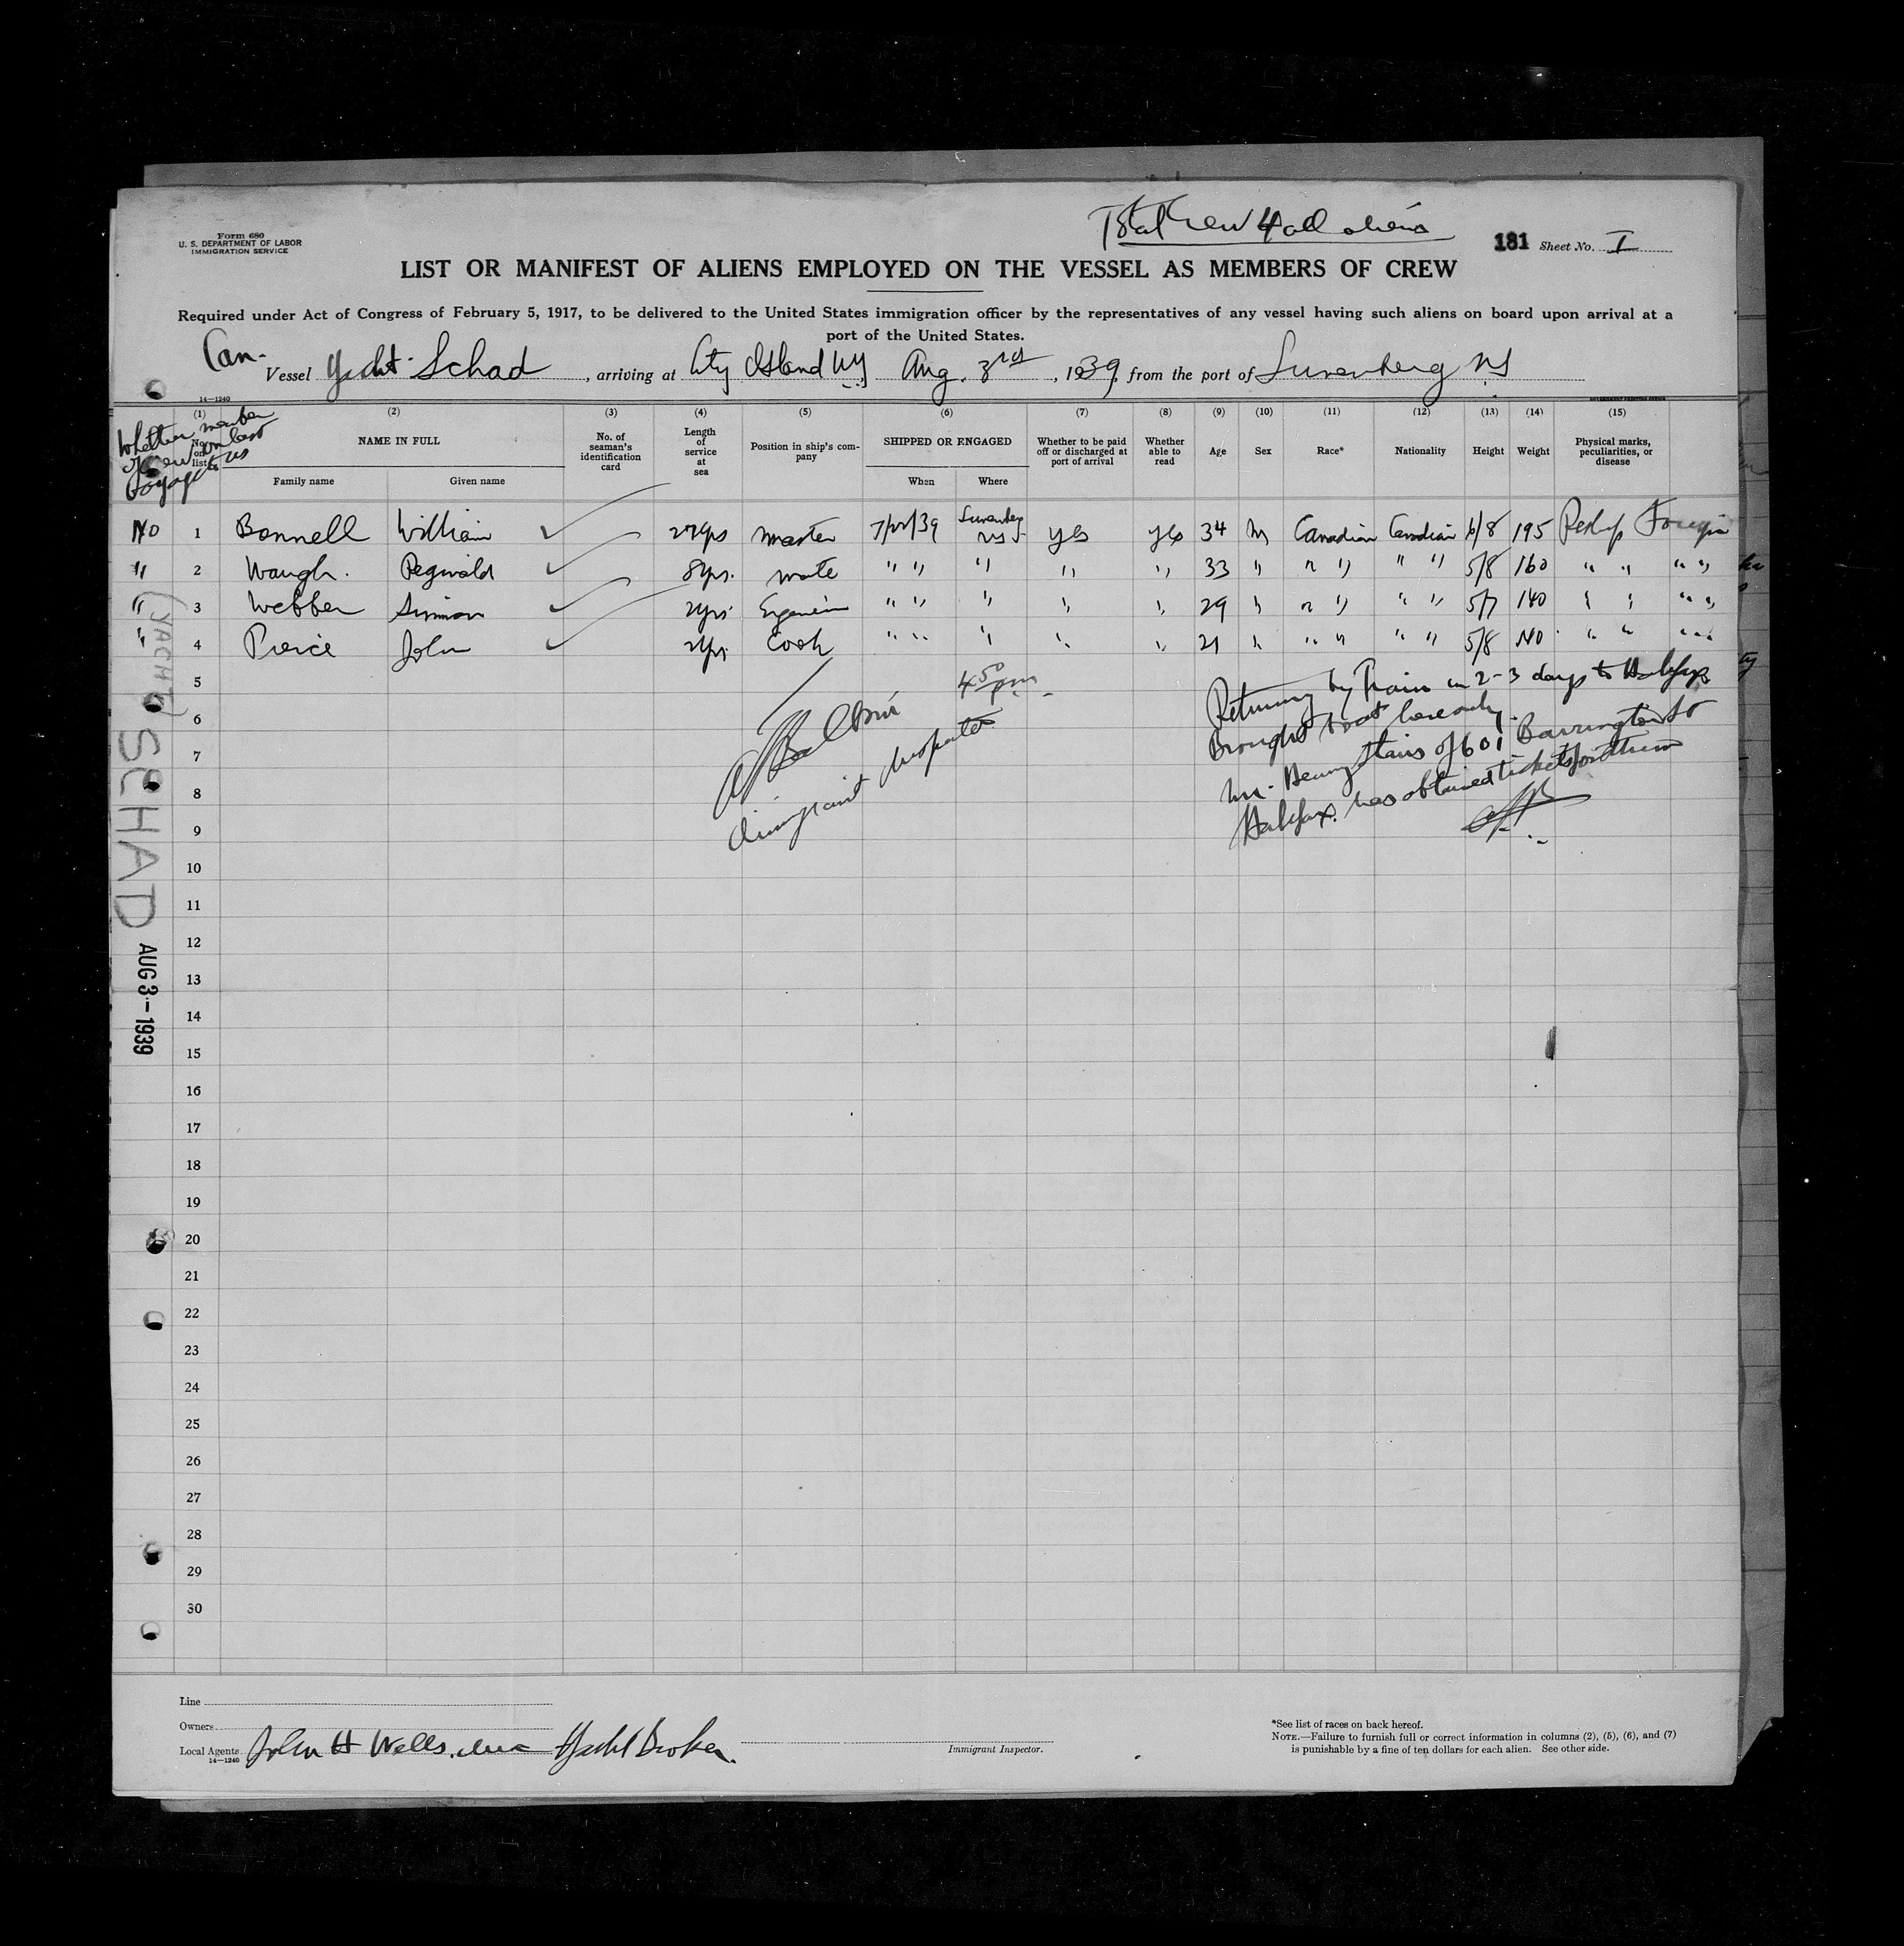 Total Crew 4 all aliens
Form 680
U. S. DEPARTMENT OF LABOR
IMMIGRATION SERVICE
181 Sheet No. I
LIST OR MANIFEST OF ALIENS EMPLOYED ON THE VESSEL AS MEMBERS OF CREW
Required under Act of Congress of February 5, 1917, to be delivered to the United States immigration officer by the representatives of any vessel having such aliens on board upon arrival at a
port of the United States.
Can. Vessel Yacht Schad, arriving at City Island NY Aug. 3rd, 1939, from the port of Lunenberg NS
14—1240
Whether member of crew on last voyage to US
(1) (2) (3) (4) (5) (6) (7) (8) (9) (10) (11) (12) (13) (14) (15)
No. on list NAME IN FULL No. of seaman's identification card Length of service at sea Position in ship's company SHIPPED OR ENGAGED Whether to be paid off or discharged at port of arrival Whether able to read Age Sex Race* Nationality Height Weight Physical marks, peculiarities, or disease
Family name Given name When Where
No 1 Bonnell William 27yrs Master Lunenberg NS yes yes 34 M Canadian Canadian 195 Foreign
" 2 Waugh. Reginald 8yrs. mate " " " " " 33 " " " " " 5/8 160 " " " "
" 3 Webber 2yrs. " " " " " 29 " " " " " 5/7 140 " " " "
" 4 Pierce John 2yrs. Cook " " " " " 21 " " " " " 5/8 140 " " " "
5
6
7
8
9
10
11
12
13
14
15
16
17
18
19
20
21
22
23
24
25
26
27
28
29
30
4 50 pm
Immigrant Inspector
Returning by Train in 2-3 days to Halifax
Brought boat here only.
Mr. Henry Stairs of 601 Barrington St
Halifax. has obtained tickets for them
(YACHT) SCHAD
AUG 3 - 1939
Line
Owners
Local Agents John H Wells. Inc Yacht Broker.
14—1240
Immigrant Inspector.
*See list of races on back hereof.
NOTE.—Failure to furnish full or correct information in columns (2), (5), (6), and (7)
is punishable by a fine of ten dollars for each alien. See other side.